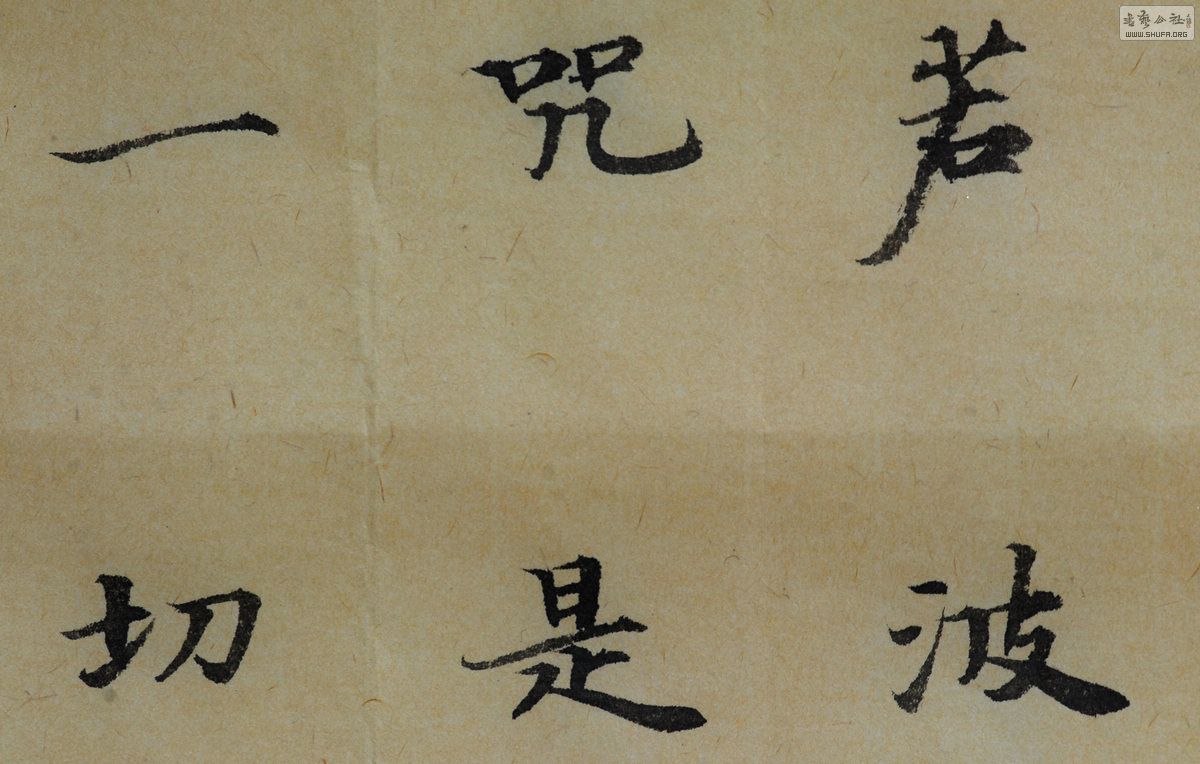 若波
咒是
一切
书艺公社
WWW.SHUFA.ORG